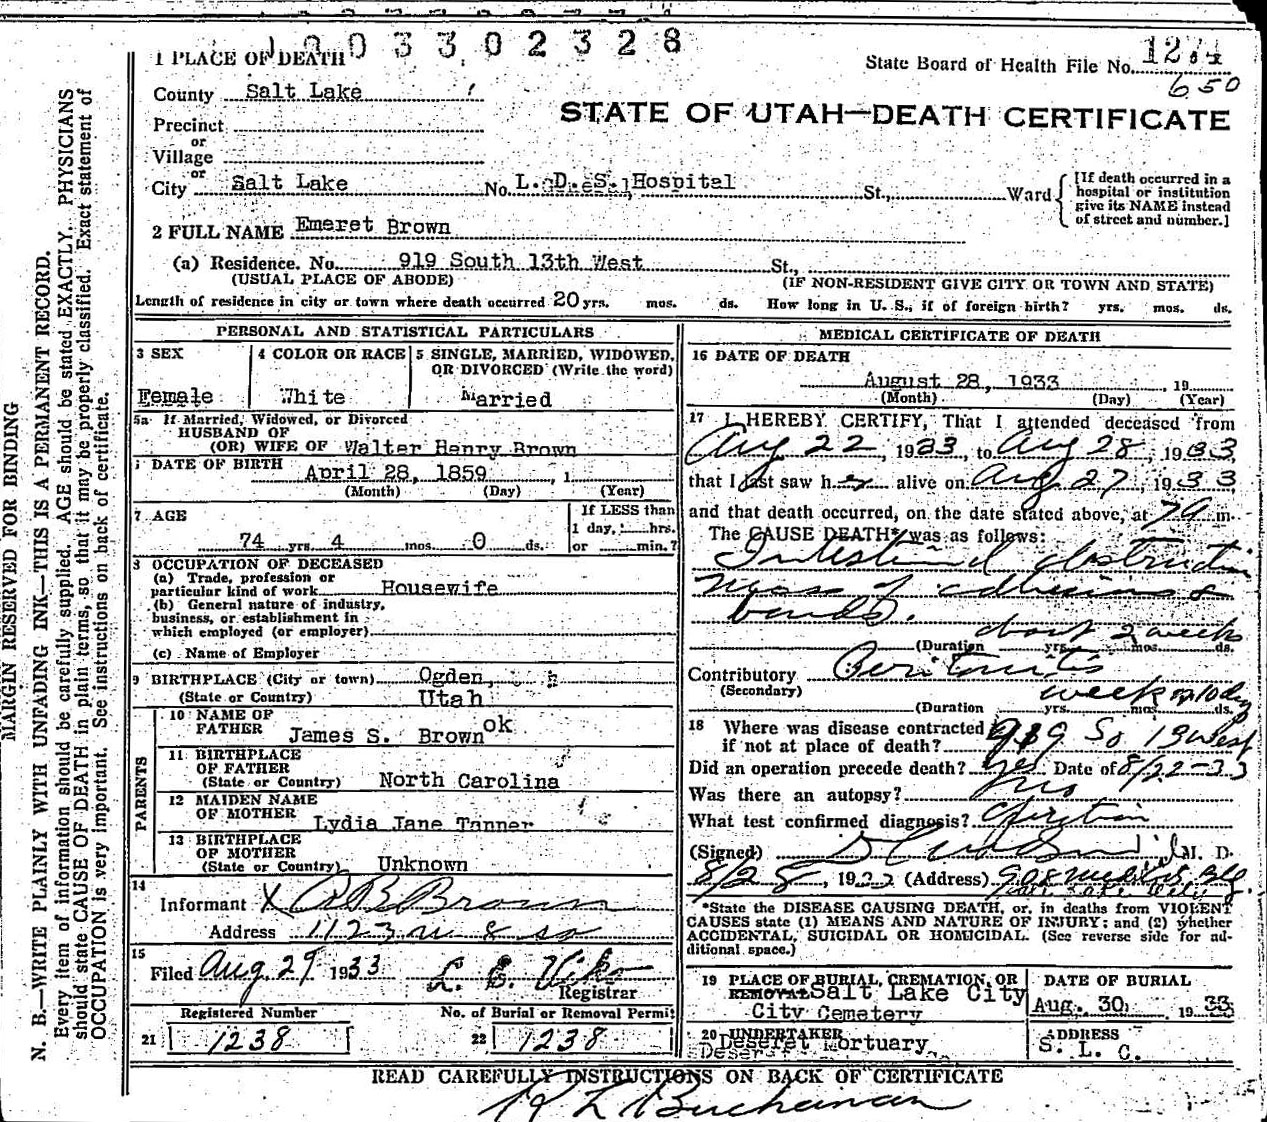 1 0 0 3 3 0 2 3 2 8
1 PLACE OF DEATH
State Board of Health File No.
650
County Salt Lake
STATE OF UTAH—DEATH CERTIFICATE
Precinct
or
Village
or
City Salt Lake No. L. D. S. Hospital St., Ward
[If death occurred in a
hospital or institution
give its NAME instead
of street and number.]
2 FULL NAME Emeret Brown
(a) Residence. No. 919 South 13th West St.,
(USUAL PLACE OF ABODE) (IF NON-RESIDENT GIVE CITY OR TOWN AND STATE)
Length of residence in city or town where death occurred 20 yrs. mos. ds. How long in U. S., if of foreign birth? yrs. mos. ds.
MARGIN RESERVED FOR BINDING
N. B.—WRITE PLAINLY WITH UNFADING INK—THIS IS A PERMANENT RECORD.
Every item of information should be carefully supplied. AGE should be stated EXACTLY. PHYSICIANS
should state CAUSE OF DEATH in plain terms, so that it may be properly classified. Exact statement of
OCCUPATION is very important. See instructions on back of certificate.
PERSONAL AND STATISTICAL PARTICULARS
3 SEX
Female
4 COLOR OR RACE
White
5 SINGLE, MARRIED, WIDOWED,
OR DIVORCED (Write the word)
Married
5a If Married, Widowed, or Divorced
HUSBAND OF
(OR) WIFE OF Walter Henry Brown
DATE OF BIRTH April 28, 1859 , 1
(Month) (Day) (Year)
7 AGE
74 yrs. 4 mos. 0 ds.
If LESS than
1 day, hrs.
or min.?
8 OCCUPATION OF DECEASED
(a) Trade, profession or
particular kind of work Housewife
(b) General nature of industry,
business, or establishment in
which employed (or employer)
(c) Name of Employer
9 BIRTHPLACE (City or town) Ogden,
(State or Country) Utah
PARENTS
10 NAME OF
FATHER James S. Brown ok
11 BIRTHPLACE
OF FATHER
(State or Country) North Carolina
12 MAIDEN NAME
OF MOTHER Lydia Jane Tanner
13 BIRTHPLACE
OF MOTHER
(State or Country) Unknown
14
Informant X Brown
Address 1123
15
Filed Aug. 29 1933
Registrar
Registered Number
21 1238
No. of Burial or Removal Permit
22 1238
MEDICAL CERTIFICATE OF DEATH
16 DATE OF DEATH
August 28, 1933 , 19
(Month) (Day) (Year)
17 I HEREBY CERTIFY, That I attended deceased from
Aug 22, 1933, to Aug 28, 1933,
that I last saw her alive on Aug 27, 1933,
and that death occurred, on the date stated above, at 7 a m.
The CAUSE DEATH* was as follows:
Intestinal obstruction
mass of adhesions &
bands.
about 2 weeks
(Duration yrs. mos. ds.
Contributory Peritonitis
(Secondary)
week or 10 day
(Duration yrs. mos. ds.
18 Where was disease contracted
if not at place of death? 919 So 13 West
Did an operation precede death? yes Date of 8/22-33
Was there an autopsy? no
What test confirmed diagnosis? operation
(Signed) M. D.
8/28, 1933 (Address)
*State the DISEASE CAUSING DEATH, or, in deaths from VIOLENT
CAUSES state (1) MEANS AND NATURE OF INJURY; and (2) whether
ACCIDENTAL, SUICIDAL OR HOMICIDAL. (See reverse side for ad-
ditional space.)
19 PLACE OF BURIAL, CREMATION, OR
REMOVAL Salt Lake City
City Cemetery
DATE OF BURIAL
Aug. 30, 1933
20 UNDERTAKER
Deseret Mortuary
ADDRESS
S. L. C.
READ CAREFULLY INSTRUCTIONS ON BACK OF CERTIFICATE
R L Buchanan